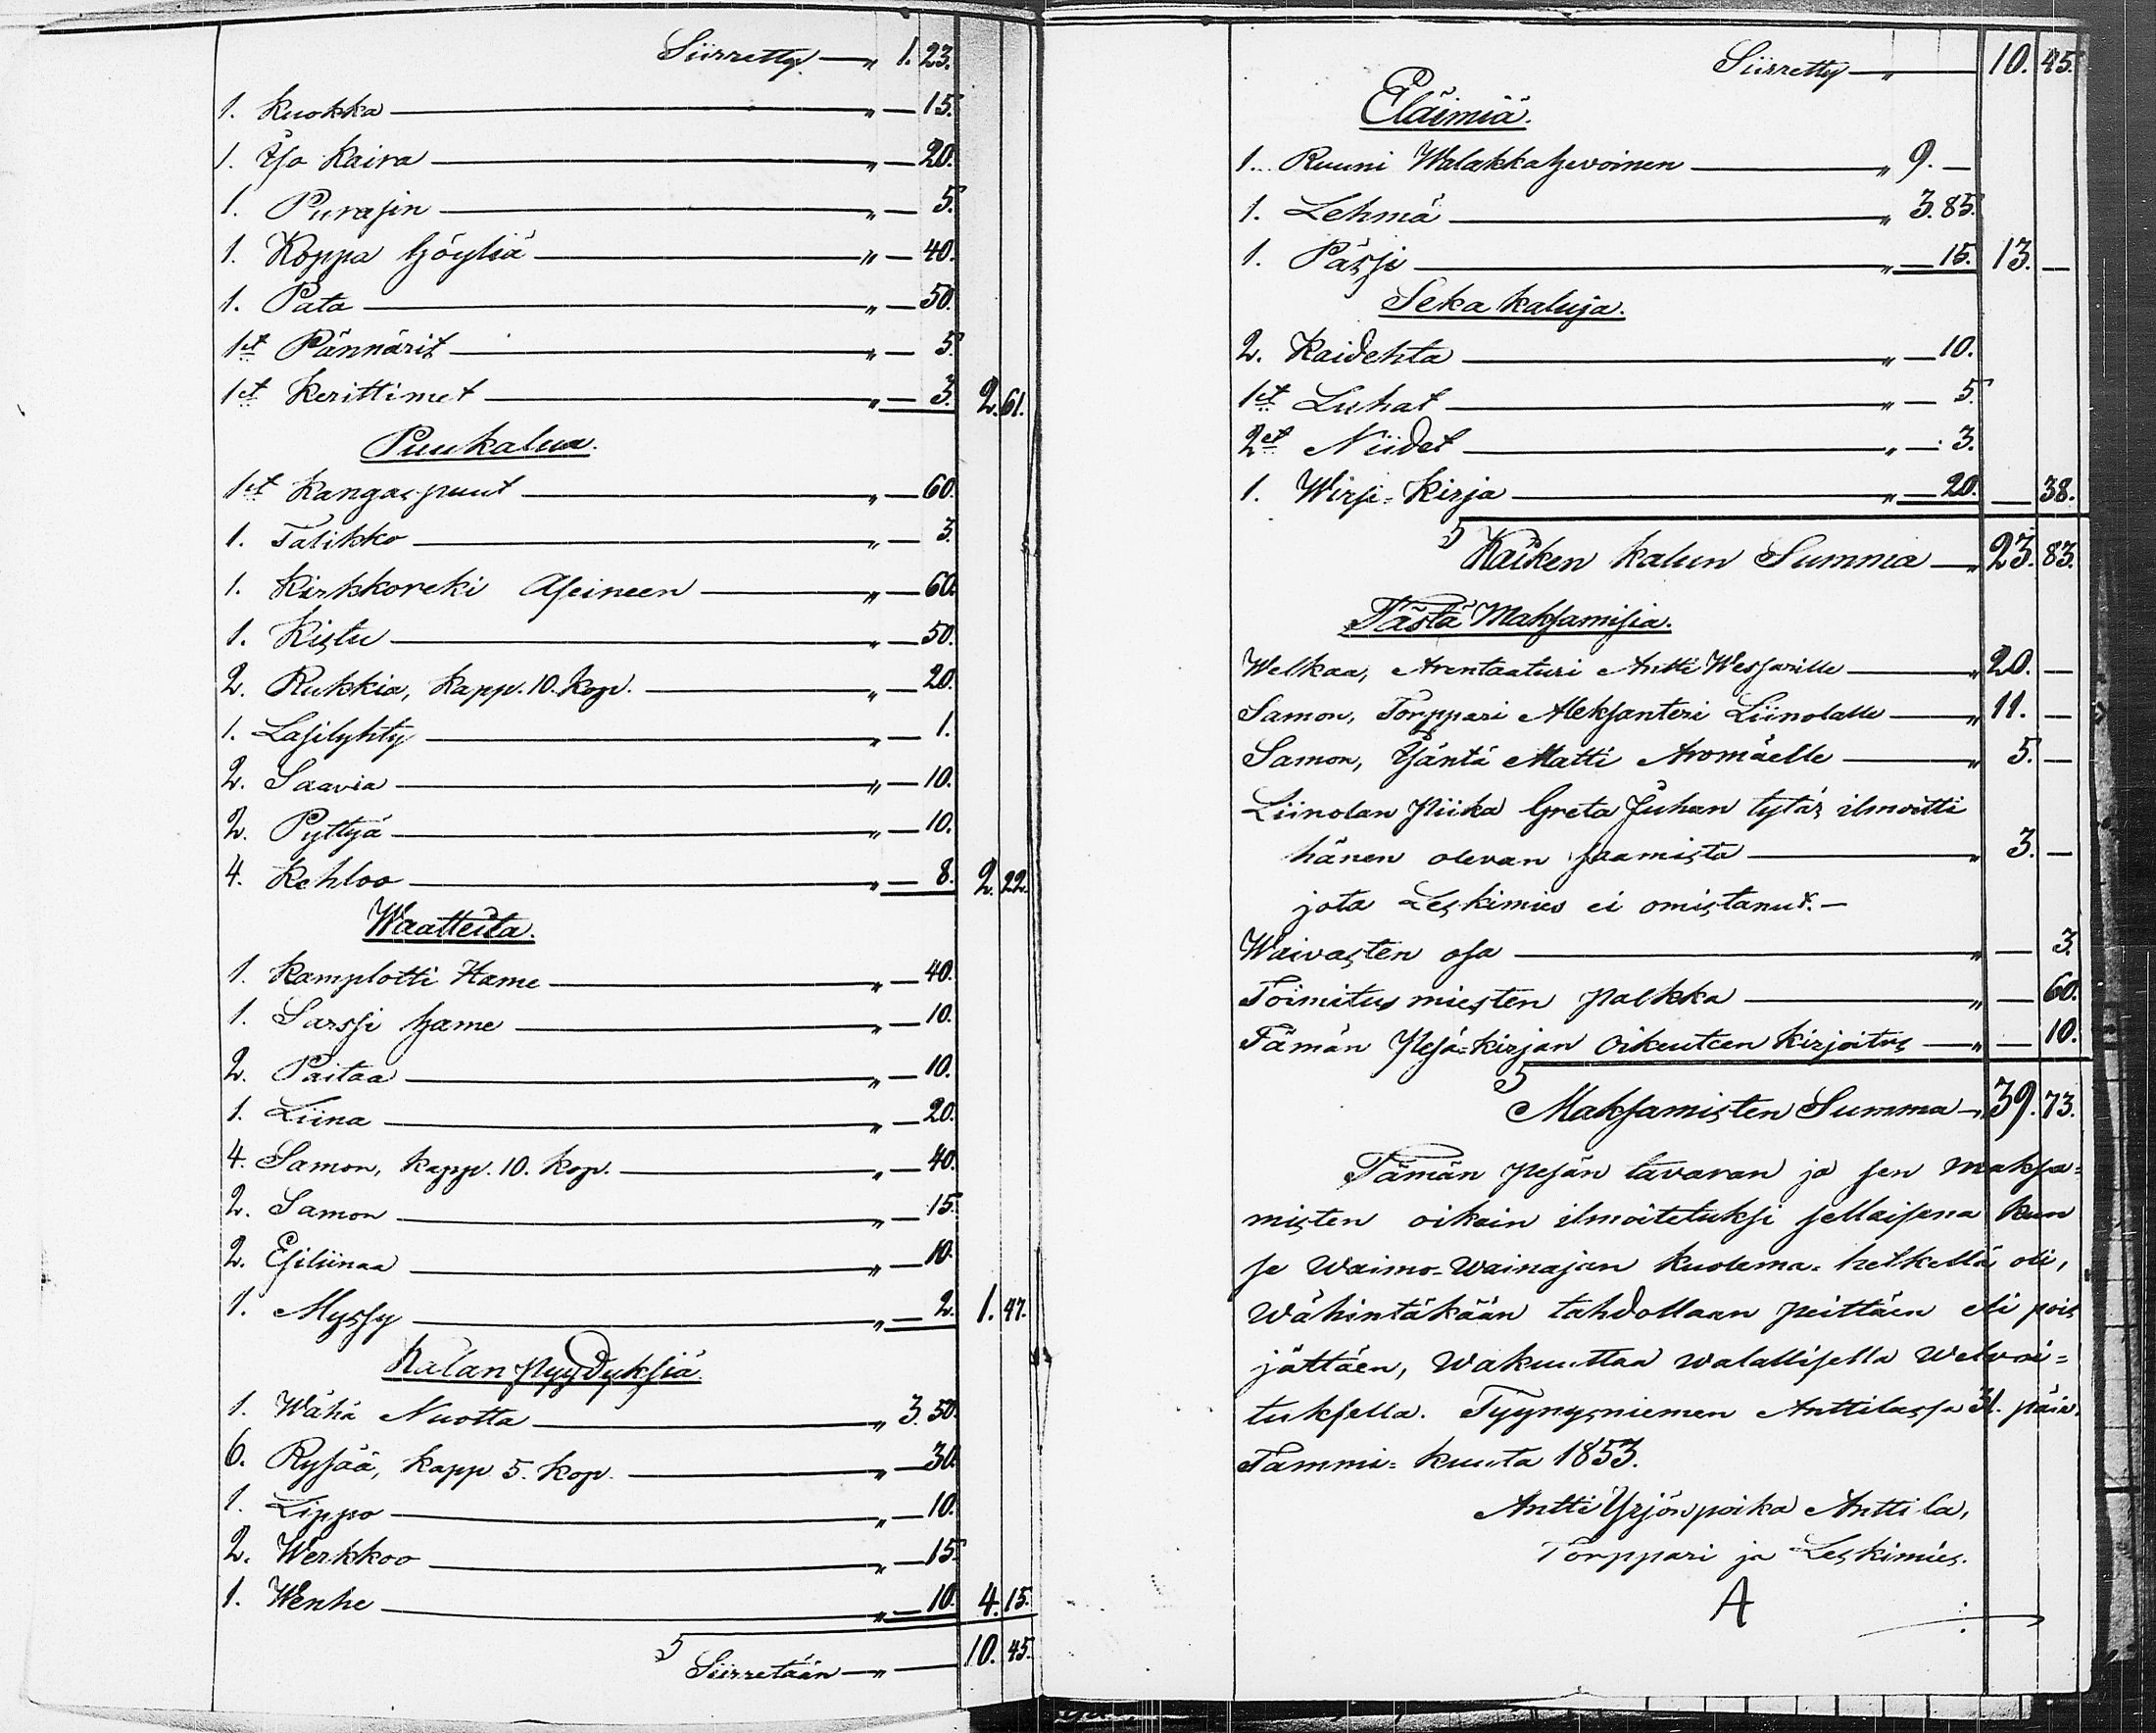 Siirretty — „ 1. 23.
1. Kuokka — „ — 15.
1. Iso Kaira — „ — 20.
1. Purasin — „ — 5.
1. Koppa Höyliä — „ — 40.
1. Pata — „ — 50.
1et Pännärit — „ — 5.
1et Kerittimet — „ — 3. 2. 61.
Puukalua.
1et Kangaspuut — „ — 60.
1. Talikko — „ — 3.
1. Kirkkoreki Aseineen — „ — 60.
1. Kistu — „ — 50.
2. Rukkia, kapp. 10. kop. — „ — 20.
1. Lasilyhty — „ — 1.
2. Saavia — „ — 10.
2. Pyttyä — „ — 10.
4. Kehloo — „ — 8. 2. 22.
Waatteita.
1. Kamplotti Hame — „ — 40.
1. Sarssi hame — „ — 10.
2. Paitaa — „ — 10.
1. Liina — „ — 20.
4. Samon, kapp. 10. kop. — „ — 40.
2. Samon — „ — 15.
2. Esiliinaa — „ — 10.
1. Myssy — „ — 2. 1. 47.
Kalan pyydyksiä.
1. Wähä Nuotta — „ 3. 50.
6. Rysää, kapp. 5. kop. — „ — 30.
1. Lippo — „ — 10.
2. Werkkoo — „ — 15.
1. Wenhe — „ — 10. 4. 15.
Siirretään — „ — 10. 45.
Siirretty — „ — 10. 45.
Eläimiä.
1. Ruuni Walakka hevoinen — „ 9. —
1. Lehmä — „ 3. 85.
1. Pässi — „ — 15. 13. —
Seka kaluja.
2. Kaidehta — „ — 10.
1et Luhat — „ — 5.
2et Niidet — „ — 3.
1. Wirsi=Kirja — „ — 20. — 38.
Kaiken kalun Summa — „ 23. 83.
Tästä Maksamisia.
Welkaa, Arentaaturi Antti Wessarille — „ 20. —
Samon, Torppari Aleksanteri Liinolalle — „ 11. —
Samon, Isäntä Matti Aromäelle — „ 5. —
Liinolan piika Greta Juhan tytär ilmoitti
hänen olevan saamista — „ 3. —
jota Leskimies ei omistanut. —
Waivasten osa — „ — 3.
Toimitus miesten palkka — „ — 60.
Tämän Pesä=kirjan oikeuteen kirjoitus — „ — 10.
Maksamisten Summa — „ 39. 73.
Tämän pesän tavaran ja sen maksa=
misten oikein ilmoitetuksi sellaisena kun
se Waimo=Wainajan kuolema=hetkellä oli,
Wähintäkään tahdollaan peittäen eli pois
jättäen, Wakuuttaa walallisella Welvoi=
tuksella. Tyynysniemen Anttilassa 31. päiv.
Tammi=kuuta 1853.
Antti Yrjönpoika Anttila,
Torppari ja Leskimies.
A